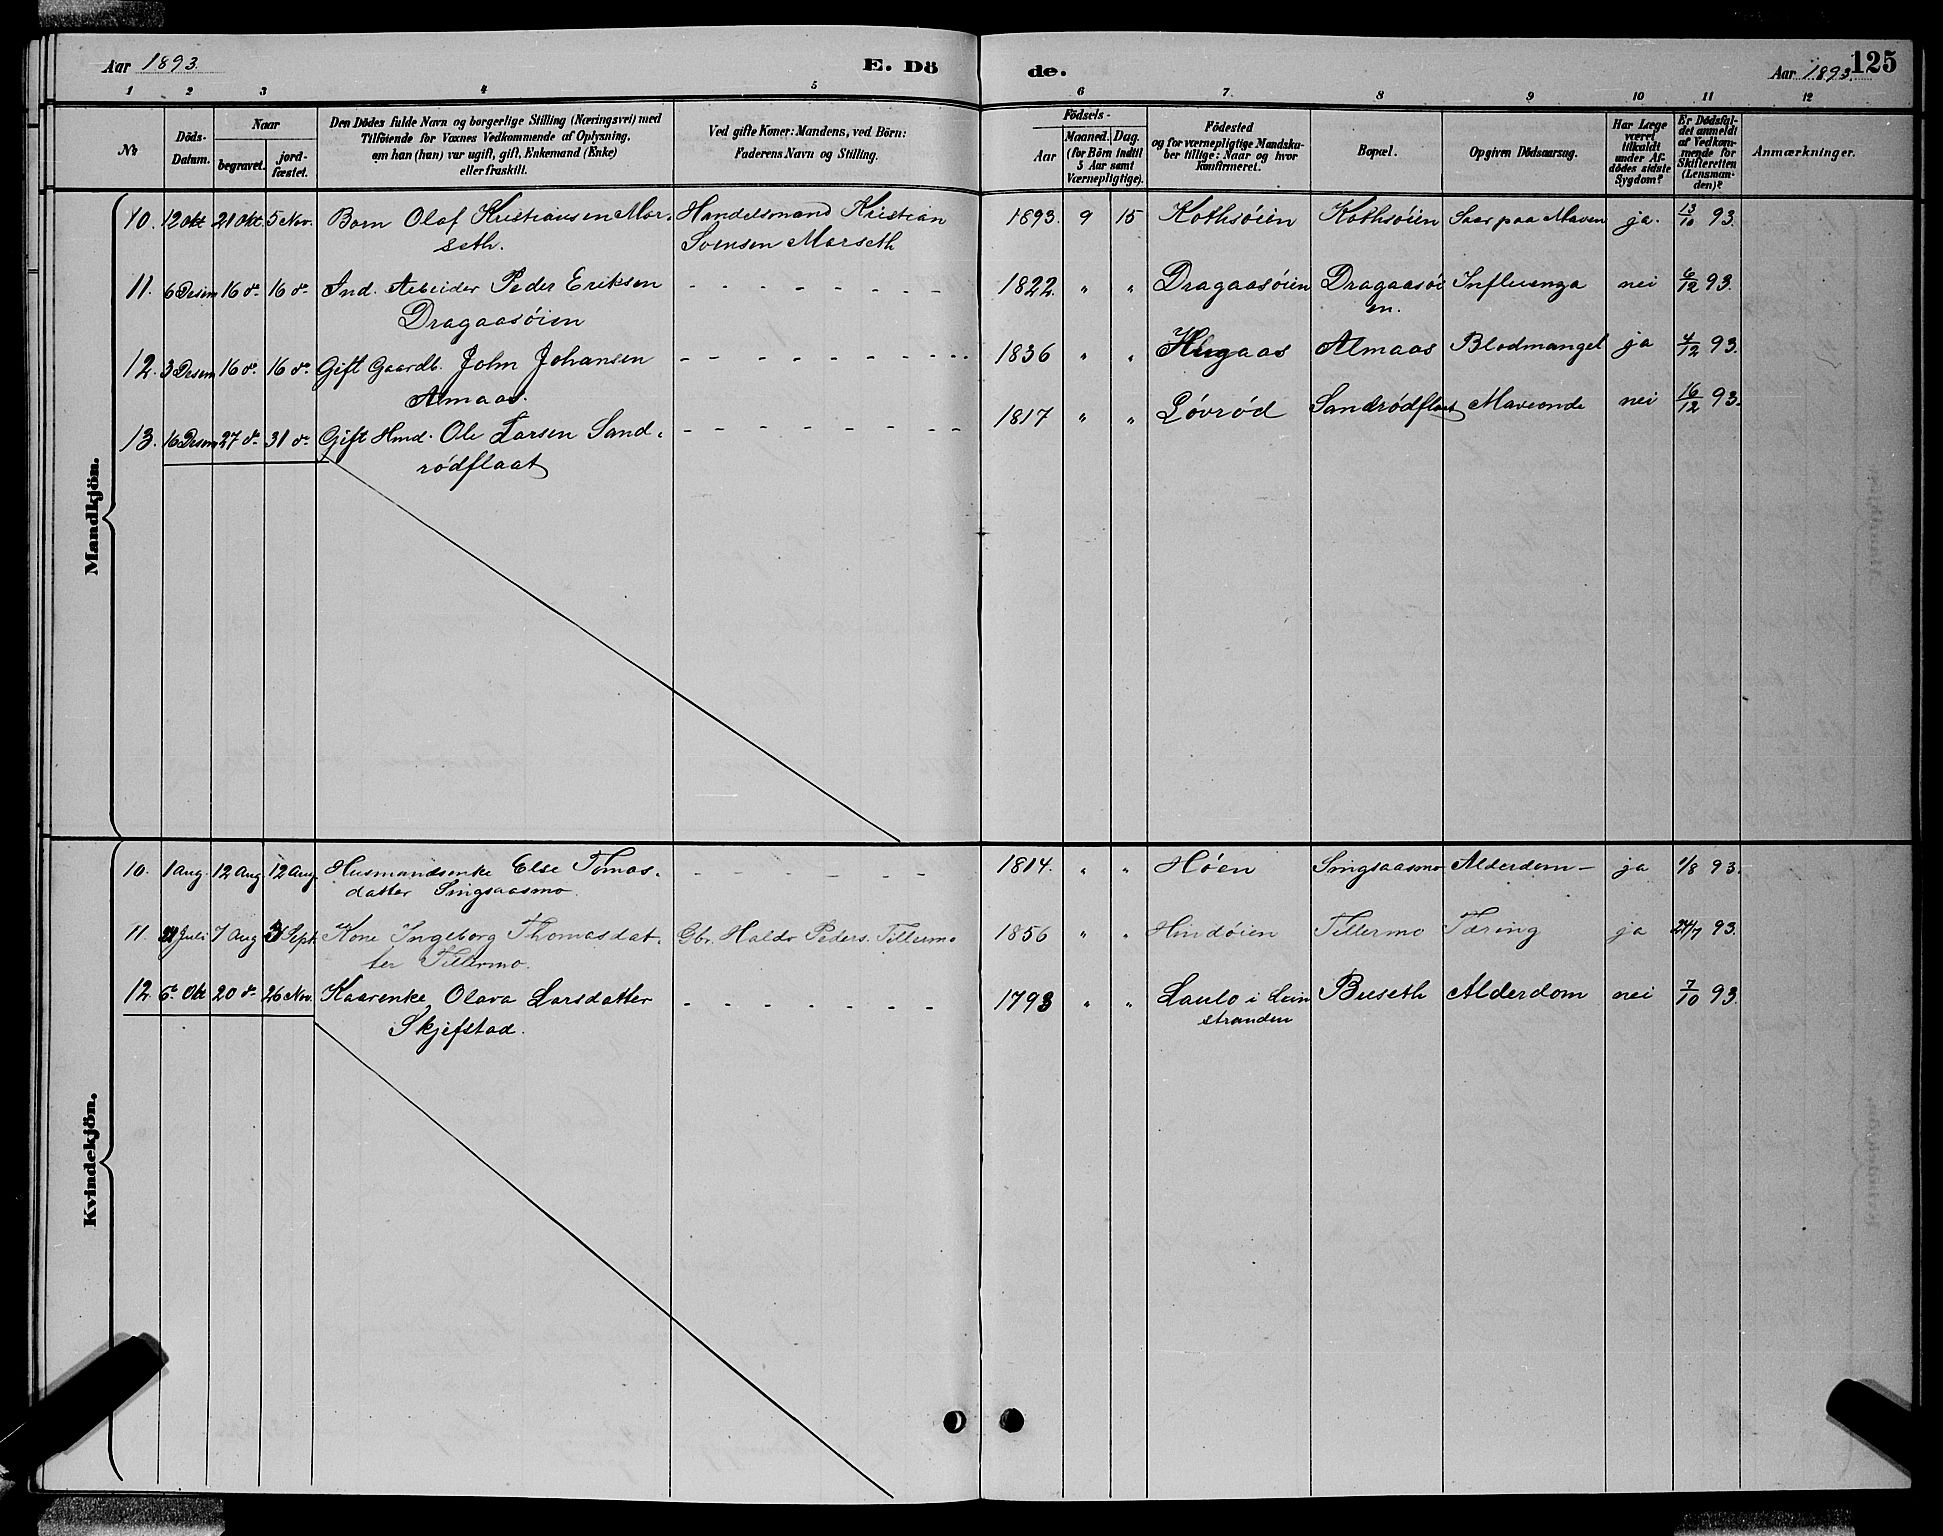 Aar 1893. E. Dö de. Aar 1893. 125
1 2 3 4 5 6 7 8 9 10 11 12
№
Döds-Datum.
Naar
begravet.
jord-fæstet.
Den Dödes fulde Navn og borgerlige Stilling (Næringsvei) med
Tilföiende for Voxnes Vedkommende af Oplysning,
om han (hun) var ugift, gift, Enkemand (Enke)
eller fraskilt.
Ved gifte Koner: Mandens, ved Börn:
Faderens Navn og Stilling.
Födsels-
Aar
Maaned. Dag.
(for Börn indtil
5 Aar samt
Værnepligtige).
Födested
og for værnepligtige Mandska-
ber tillige: Naar og hvor
konfirmeret.
Bopæl.
Opgiven Dödsaarsag.
Har Læge
været
tilkaldt
under Af-
dödes sidste
Sygdom?
Er Dödsfal-
det anmeldt
af Vedkom-
mende for
Skifteretten
(Lensman-
den)?
Anmærkninger.
Mandkjön.
10. 12 Okt 21 Okt. 5 Nov. Barn Olaf Kristiansen Mor- Handelsmand Kristian 1893. 9 15 Kothsöien Kothsöien Saar paa Maven ja. 13/10 93.
seth. Svensen Morseth
11. 6 Desem 16 d. 16 d. Ind. Arbeider Peder Eriksen - - - - - - - - 1822. " " Dragaasöien Dragaasöi Influenza nei 6/12 93.
Dragaasöien en.
12. 3 Desem 16 d. 16 d. Gift Gaardb. John Johansen - - - - - - - - - 1836 " " Almaas Blodmangel ja 4/12 93.
Almaas.
13. 16 Desem 27 d. 31 d. Gift Hmd. Ole Larsen Sand- - - - - - - - - - 1817 " " Lövröd Sandrödflaat Maveonde nei 16/12 93.
rödflaat
Kvindekjön.
10. 1 Aug. 12 Aug 12 Aug. Husmandsenke Else Tomas- - - - - - - 1814. " " Höen Singsaasmo Alderdom - ja 1/8 93.
datter Singsaasmo.
11. Juli 7 Aug 3 Sept. Kone Ingeborg Thomasdat- Gbr. Haldo Peders. Tillermo 1856 " " Hindöien Tillermo Tæring ja 24/7 93.
ter Tillermo.
12. 6 Okt 20 d. 26 Nov. Kaarenke Olava Larsdatter - - - - - - - 1793 " " Laulo i Lein Buseth Alderdom nei 7/10 93.
Skjefstad. stranden